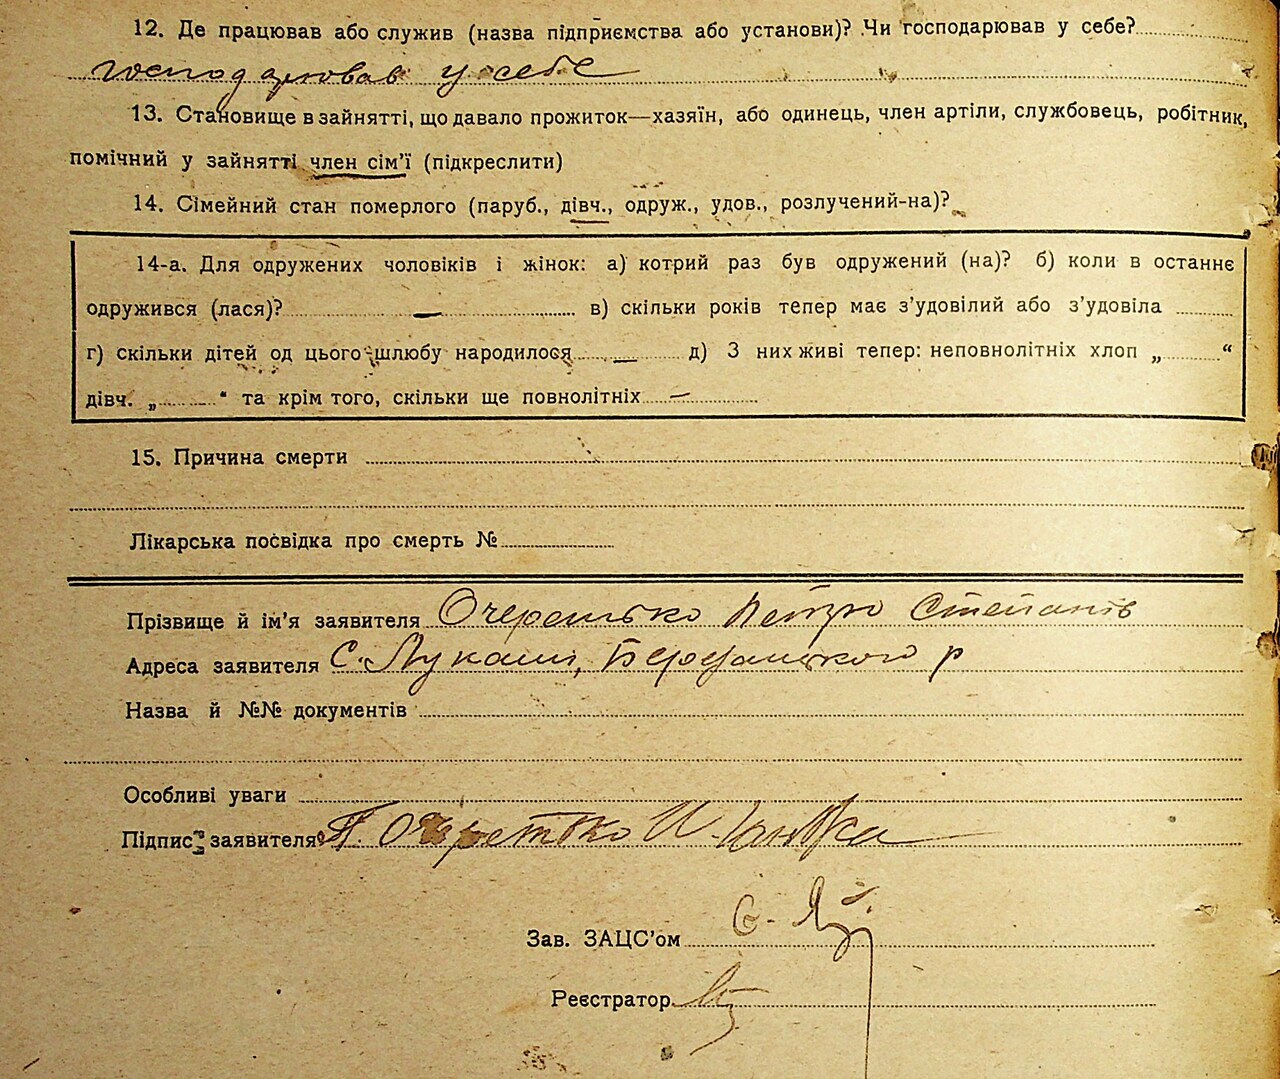 12. Де працював або служив (назва підприємства або установи)? Чи господарював у себе?
господарював у себе
13. Становище в зайнятті, що давало прожиток—хазяїн, або одинець, член артіли, службовець, робітник,
помічний у зайнятті член сім’ї (підкреслити)
14. Сімейний стан померлого (паруб., дівч., одруж., удов., розлучений-на)?
14-а. Для одружених чоловіків і жінок: а) котрий раз був одружений (на)? б) коли в останнє
одружився (лася)? — в) скільки років тепер має з’удовілий або з’удовіла
г) скільки дітей од цього шлюбу народилося — д) З них живі тепер: неповнолітніх хлоп „ “
дівч. „ “ та крім того, скільки ще повнолітніх —
15. Причина смерти
Лікарська посвідка про смерть №
Прізвище й ім’я заявителя Очеретько Петро Степанів
Адреса заявителя С. Лукаші, р
Назва й №№ документів
Особливі уваги
Підпис заявителя П. Очеретько
Зав. ЗАЦС’ом
Реєстратор